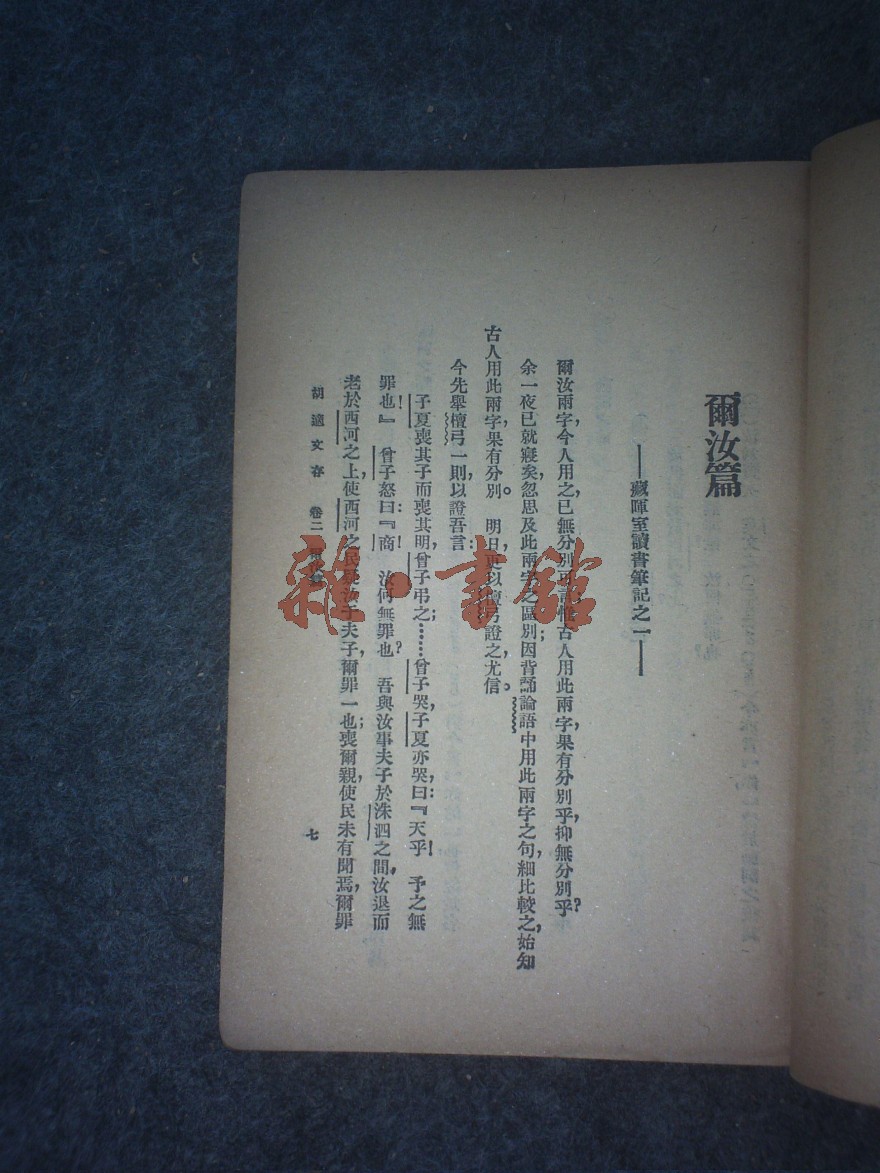 爾汝篇
——藏暉室讀書筆記之一——
爾汝兩字,今人用之,已無分別可言。惟古人用此兩字,果有分別乎,抑無分別乎?
余一夜已就寢矣,忽思及此兩字之區別;因背誦論語中用此兩字之句,細比較之,始知
古人用此兩字,果有分別。明日更以檀弓證之,尤信。
今先舉檀弓一則,以證吾言:
子夏喪其子而喪其明,曾子弔之;……曾子哭,子夏亦哭,曰:『天乎!予之無
罪也!』曾子怒曰:『商!汝何無罪也?吾與汝事夫子於洙泗之間,汝退而
老於西河之上,使西河之民疑汝于夫子,爾罪一也;喪爾親,使民未有聞焉,爾罪
胡適文存 卷二 爾汝篇
七
雜·書館